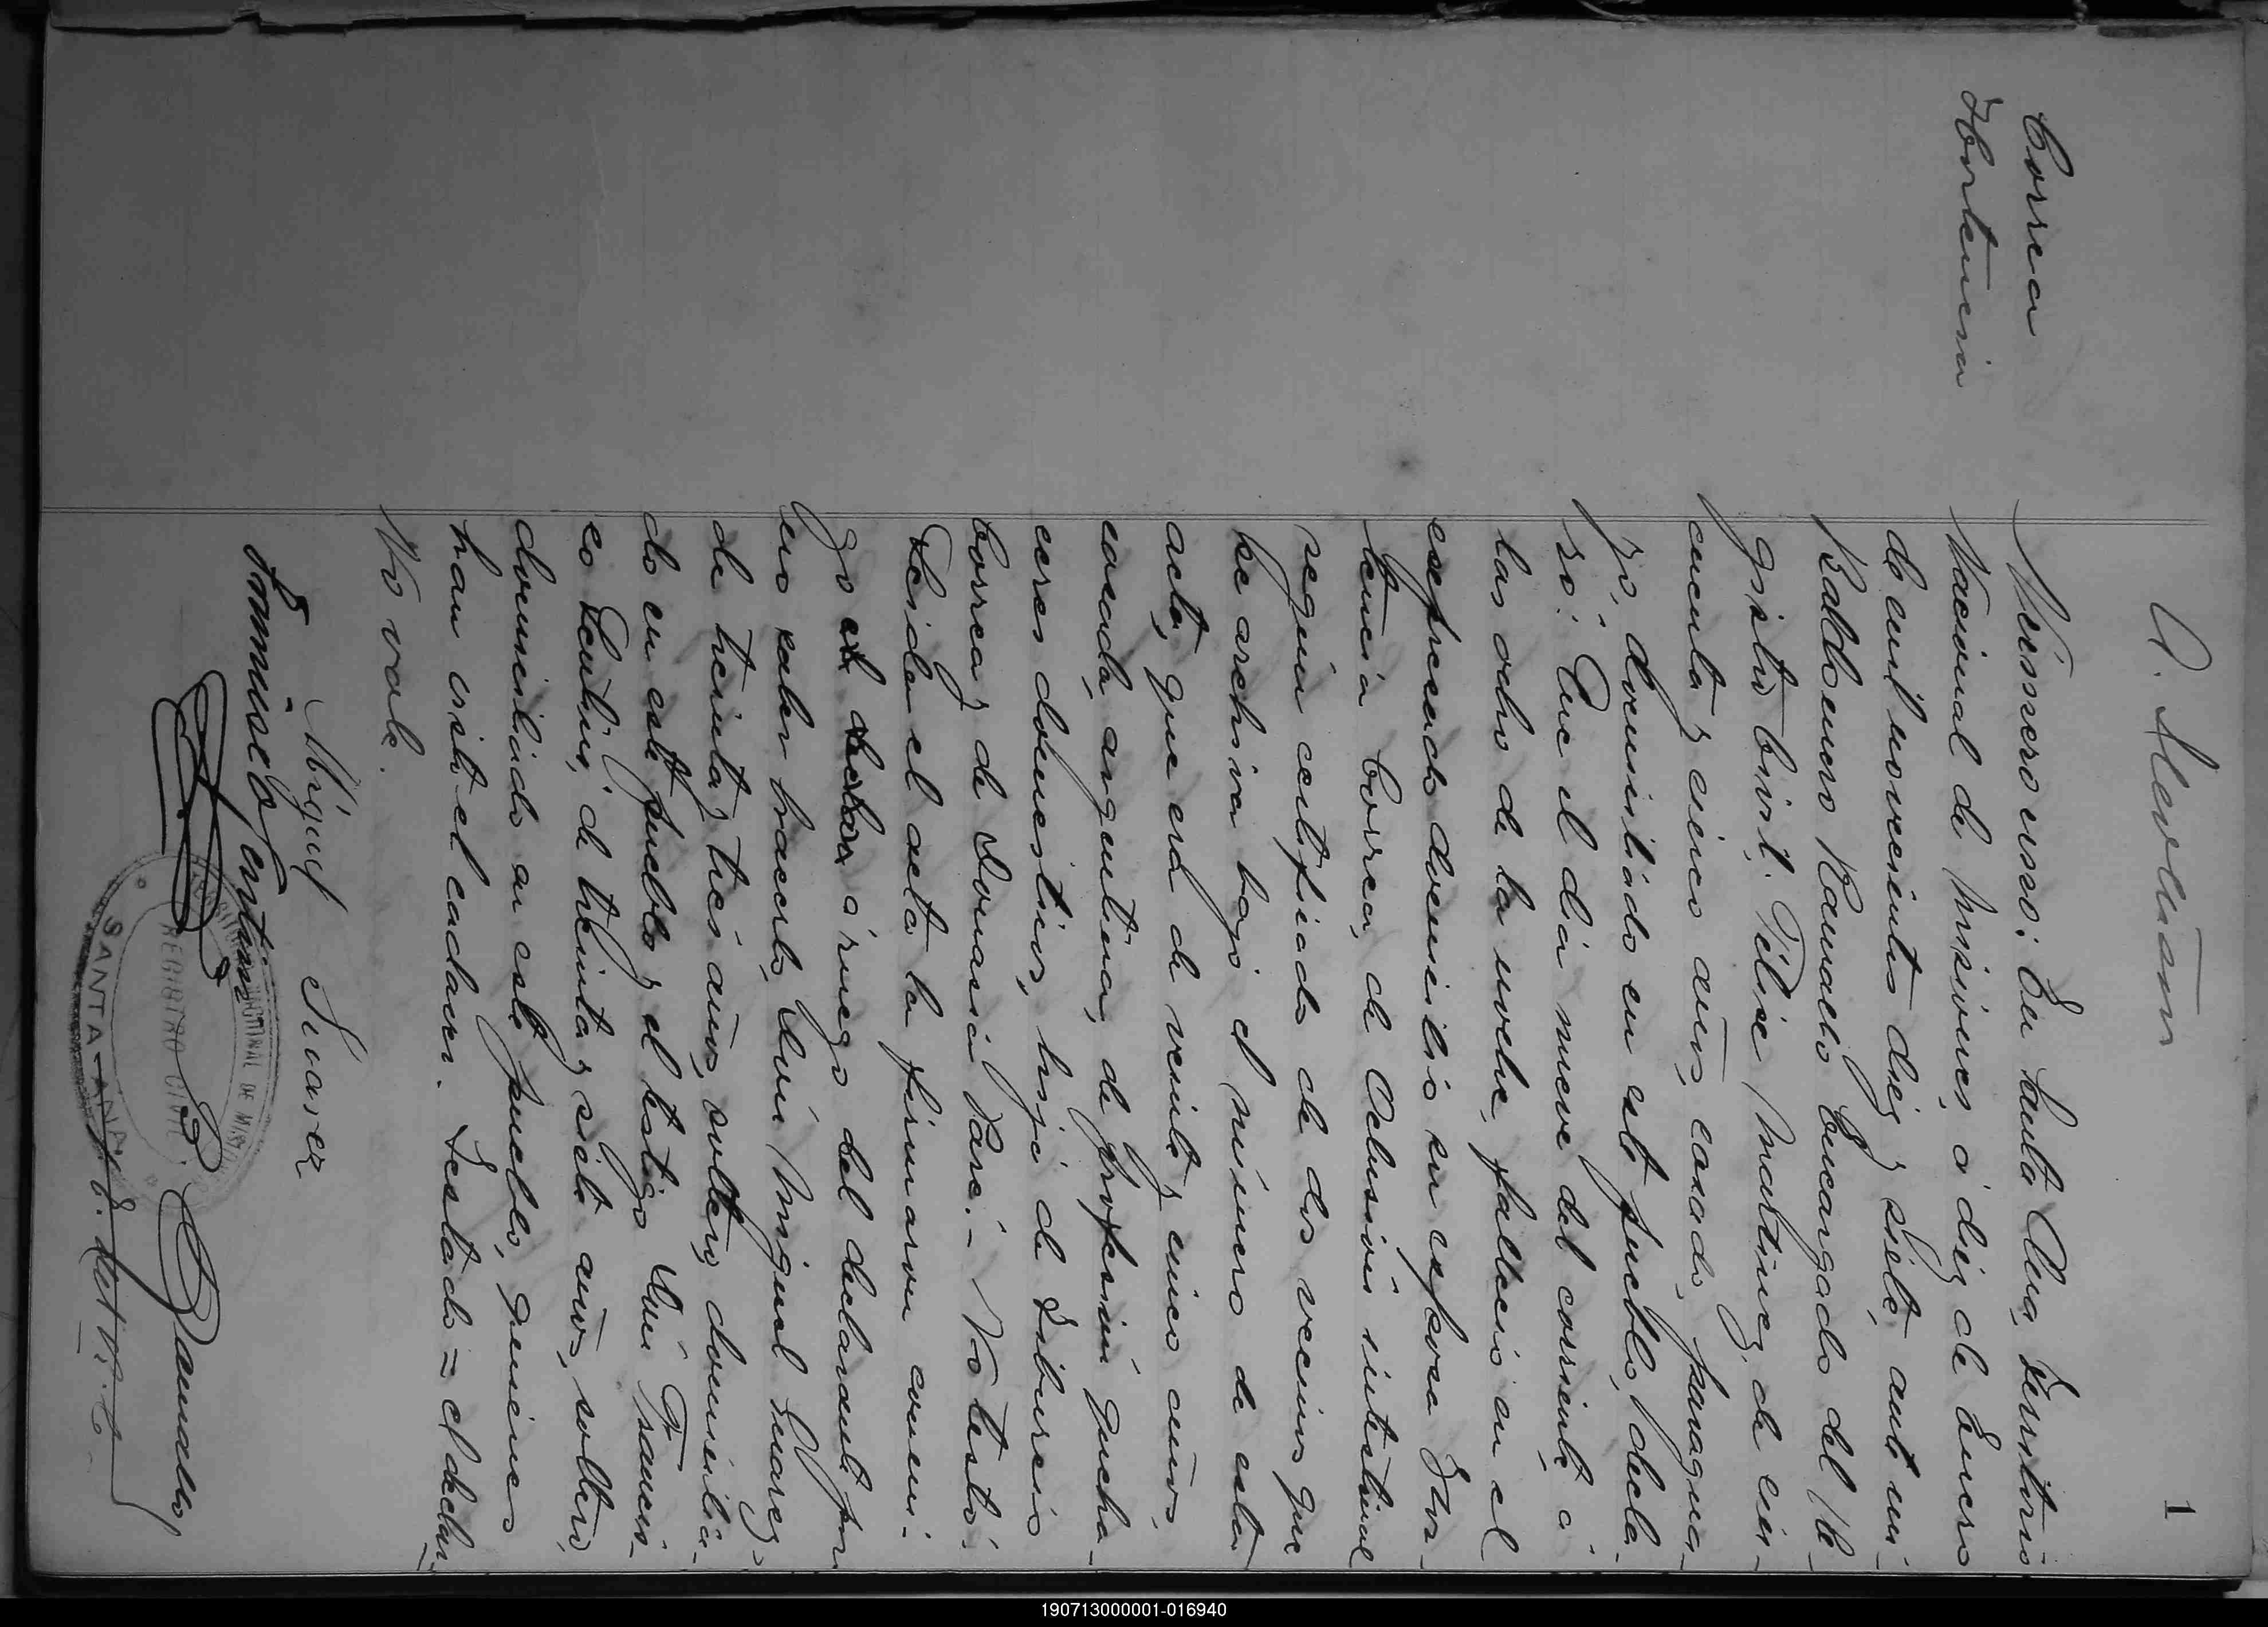 1
Correa
Hortencia
Número uno: En Santa Ana, Territorio
Nacional de Misiones, á diez de Enero
de mil novecientos diez y siete, ante mi
Baldomero Ramallo Encargado del Re-
gistro Civil. Félix Martinez, de cin-
cuenta y cinco años, casado, paragua-
yo, domiciliado en este pueblo, decla-
ró: Que el dia nueve del corriente á
las ocho de la noche, falleció en el
expresado domicilio su esposa Hor-
tencia Correa, de Oclusión intestinal
según certificado de dos vecinos que
se archiva bajo el número de esta
acta, que era de veinte y cinco años,
casada, argentina, de profesión queha-
ceres domesticos, hija de Tiburcio
Correa y de Venancia Paré.- No testó.
Leida el acta la firmaron conmi-
go el declara á ruego del declarante por
no saber hacerlo, Don Miguel Suarez,
de treinta y tres años, soltero, domicilia-
do en este pueblo y el testigo Don Francis-
co Centu de treinta y siete años, soltero,
domiciliado en este pueblo, quienes
han visto el cadaver. Testado = el declara
No vale.
Miguel Suarez
Francisco
B. Ramallo
REGISTRO CIVIL
SANTA ANA
E. del R. C.
190713000001-016940